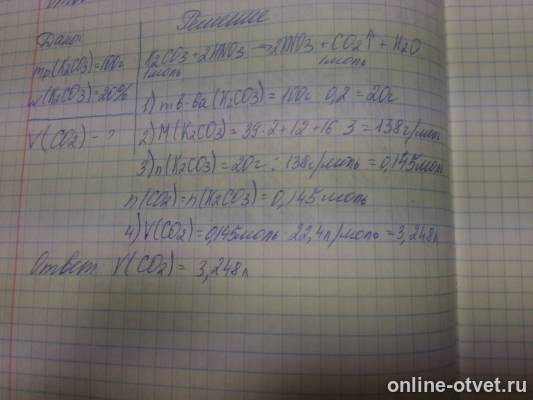 Решение
Дано:
mр(K2CO3)=100г
w(K2CO3)=20%
V(CO2)-?
K2CO3+2HNO3→2KNO3+CO2↑+H2O
1моль 1моль
1) m в-ва(K2CO3)=100г·0,2=20г
2) M(K2CO3)=39·2+12+16·3=138г/моль
3) n(K2CO3)=20г:138г/моль=0,145моль
n(CO2)=n(K2CO3)=0,145моль
4) V(CO2)=0,145моль·22,4л/моль=3,248л
Ответ V(CO2)=3,248л
online-otvet.ru